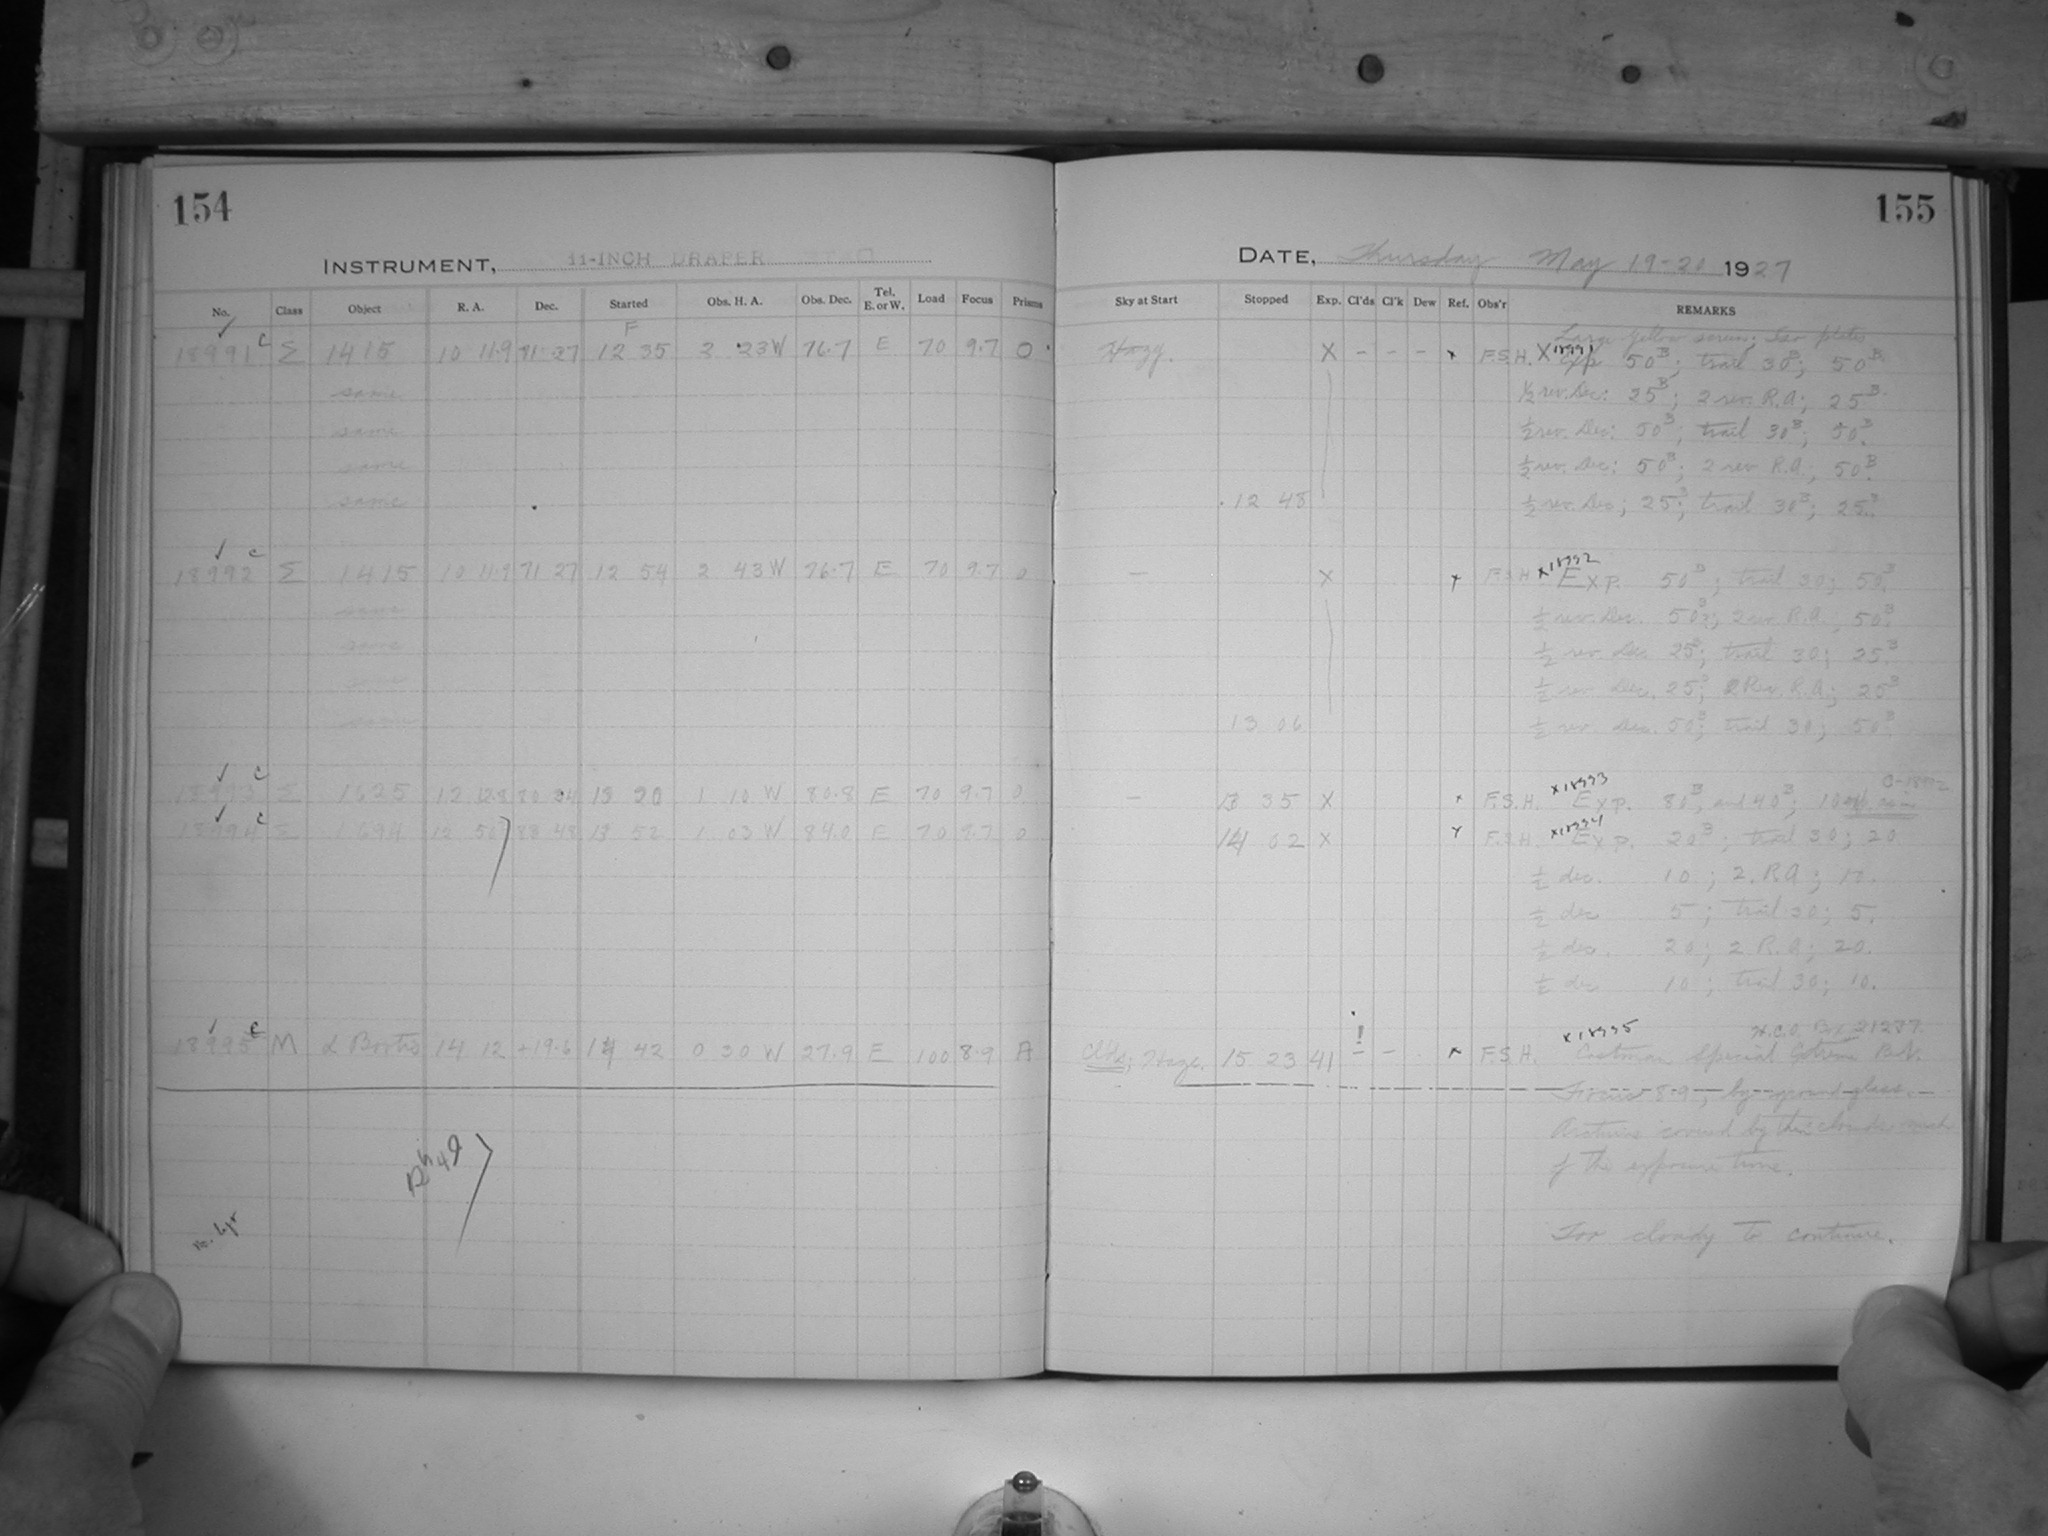 154
INSTRUMENT, 11-INCH DRAPER
No. Class Object R. A. Dec. Started Obs. H. A. Obs. Dec. Tel. E. or W. Load Focus Prisms
F
18991 c Σ 1415 10 11.9 71 27 12 35 2 23 W 76.7 E 70 9.7 0
same
same
same
same
18992 c Σ 1415 10 11.9 71 27 12 54 2 43 W 76.7 E 70 9.7 0
same
same
same
same
18993 c Σ 1625 12 12.8 80 34 13 20 1 10 W 80.8 E 70 9.7 0
18994 c Σ 1694 12 50 83 48 13 52 1 03 W 84.0 E 70 9.7 0
18995 c M α Bootis 14 12 +19.6 14 42 0 30 W 27.9 E 100 8.9 A
155
DATE, Thursday May 19-20 1927
Sky at Start Stopped Exp. Cl'ds Cl'k Dew Ref. Obs'r REMARKS
Large yellow screen; Iso plates
Hazy. X - - - x F.S.H. X18991 Exp 50B; trail 30B; 50B
½ rev. Dec: 25B; 2 rev. R.A; 25B
½ rev. Dec: 50B; trail 30B; 50B.
½ rev. Dec: 50B; 2 rev R.A., 50B
12 48 ½ rev. Dec; 25B; trail 30B; 25B.
— X x F.S.H X18992 Exp. 50B; trail 30; 50B
½ rev. Dec. 50B; 2 rev. R.A.; 50B
½ rev. Dec. 25B; trail 30; 25B
½ rev Dec. 25B; 2 Rev. R.A; 25B
13 06 ½ rev. Dec. 50B; trail 30; 50B
— 13 35 X x F.S.H. X18993 Exp. 80B, and 40B; 10
14 02 X x F.S.H. X18994 Exp. 20B; trail 30; 20
½ dec. 10; 2. R.A; 10.
½ dec 5; trail 30; 5.
½ dec. 20; 2 R.A; 20.
½ dec 10; trail 30; 10.
X18995 H.C.O. 21287.
Clds; Haze. 15 23 41 ! - - x F.S.H. Eastman Special
Focus 8.9, by ground glass.
Arcturus covered by thin clouds much
of the exposure time.
Too cloudy to continue.